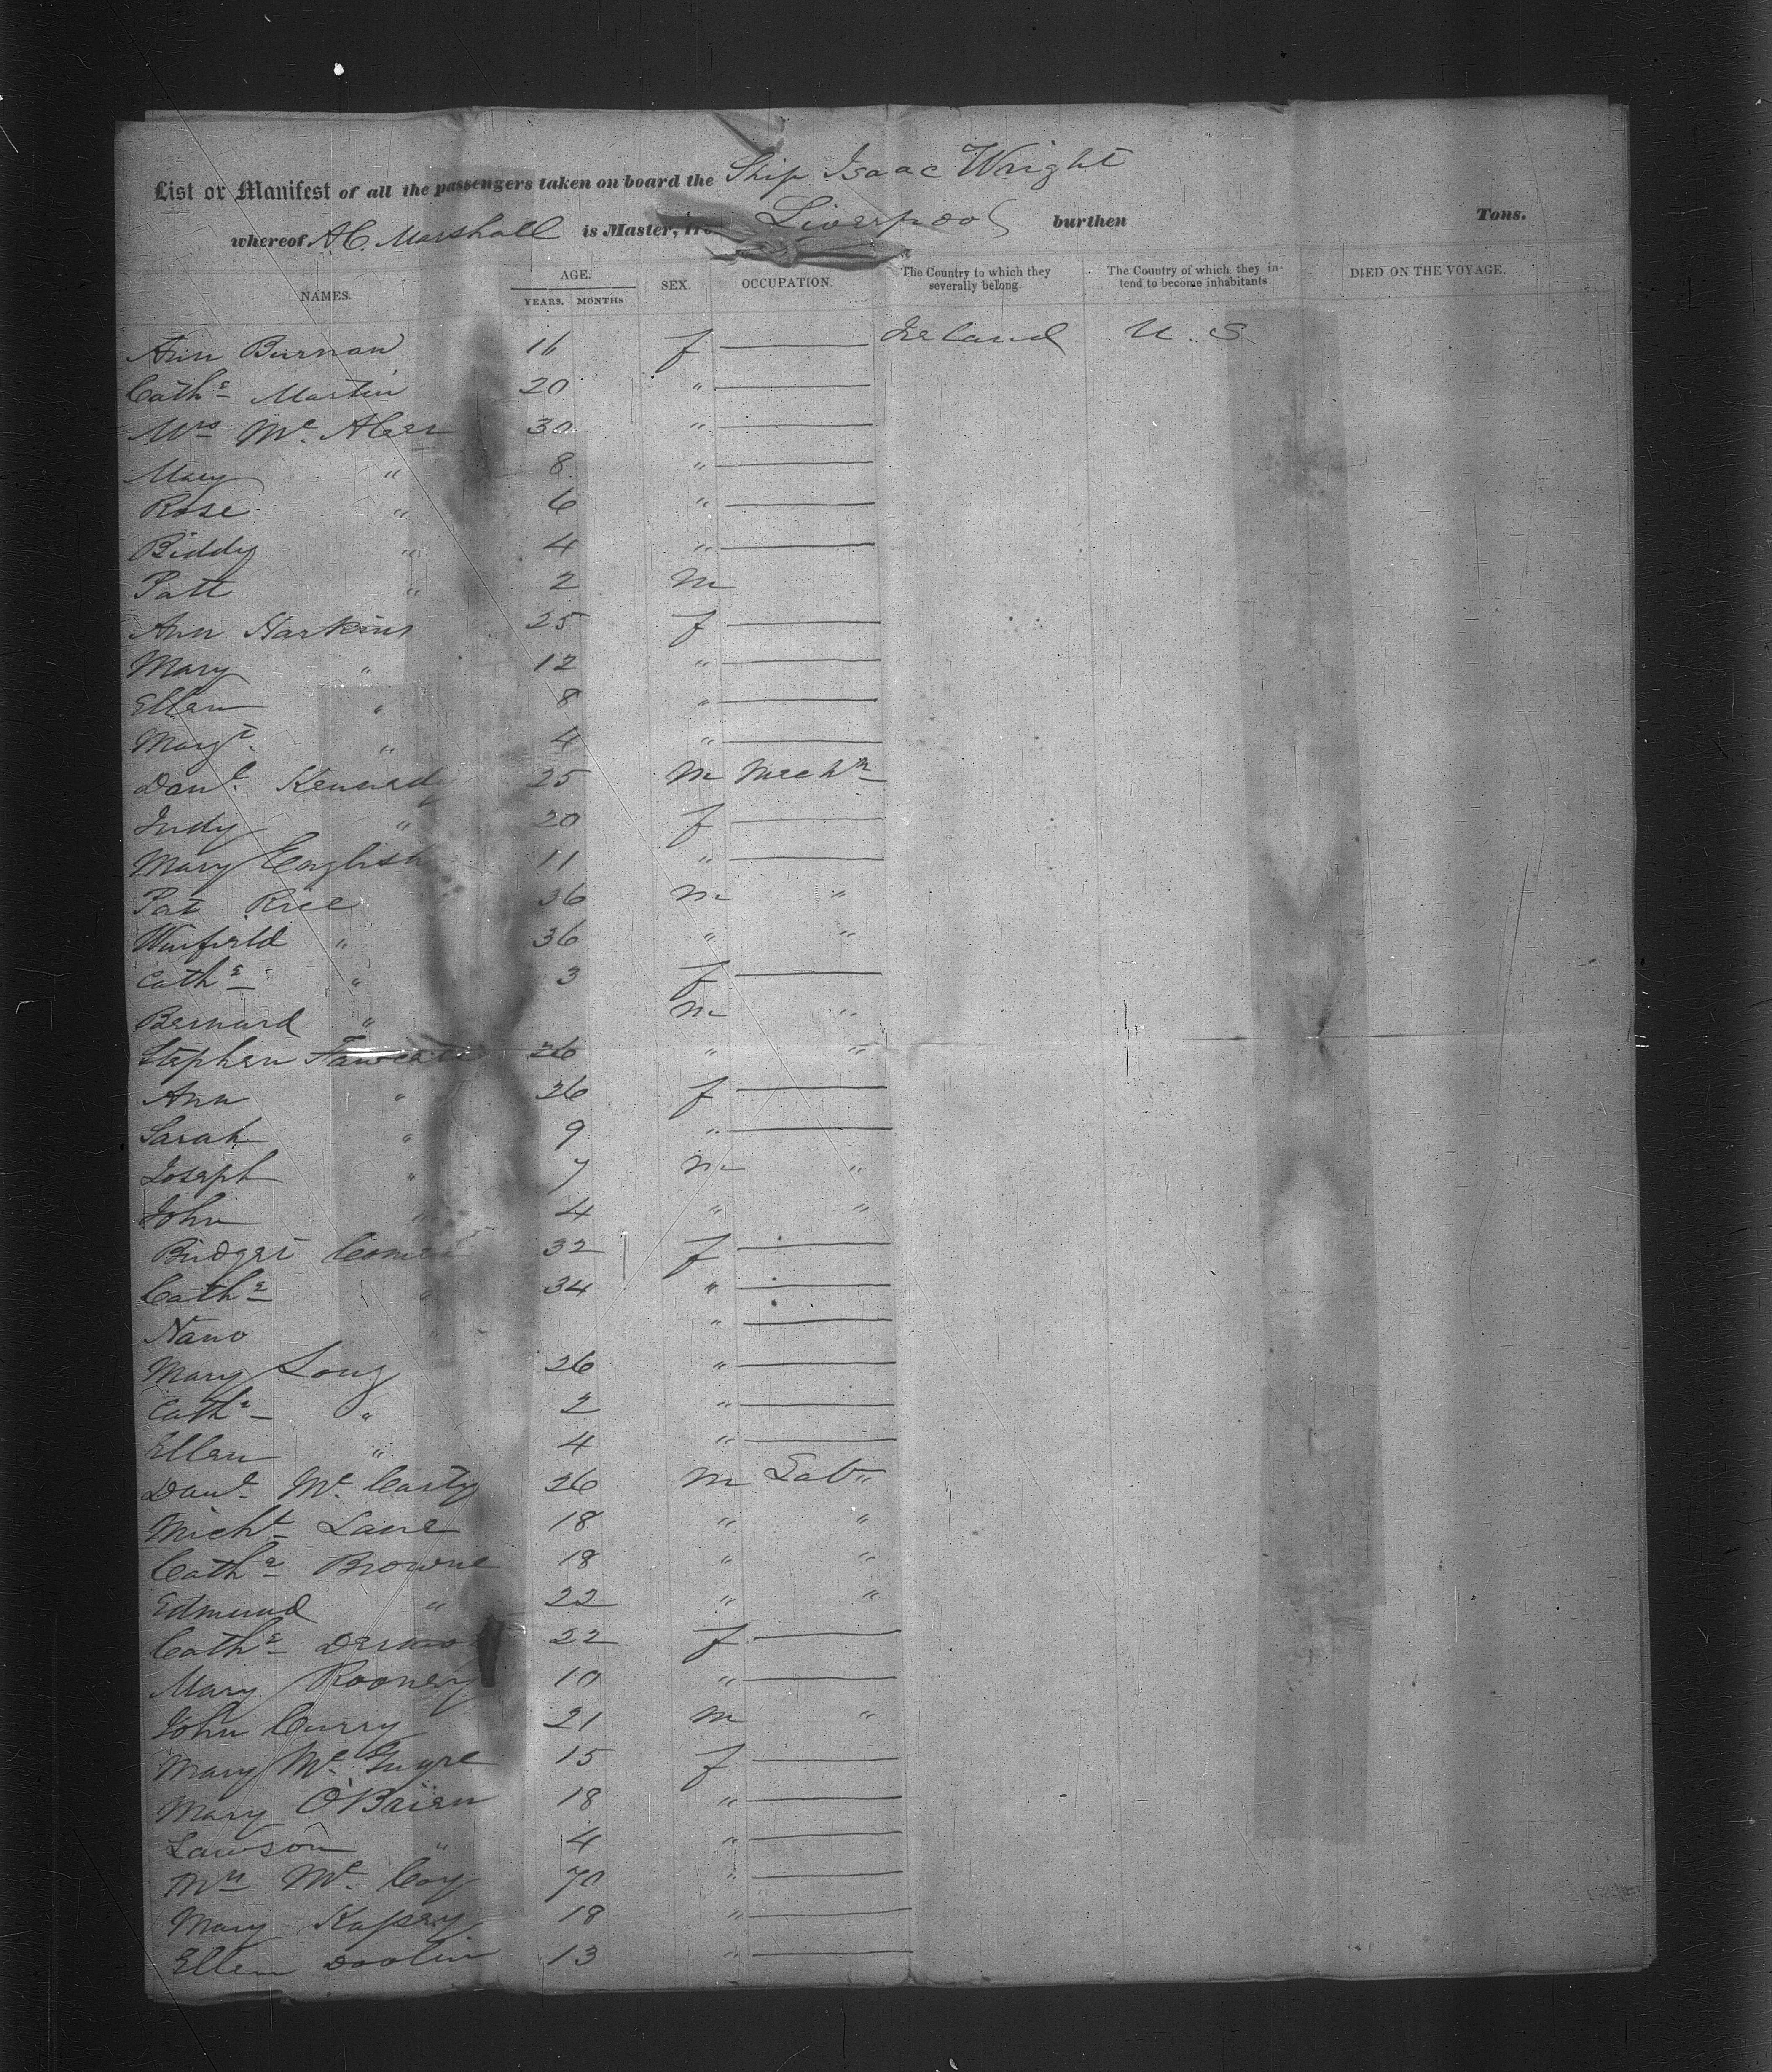 List or Manifest of all the passengers taken on board the Ship Isaac Wright
whereof A.C. Marshall is Master, from Liverpool burthen Tons.
NAMES. AGE. YEARS. MONTHS SEX. OCCUPATION. The Country to which they severally belong. The Country of which they intend to become inhabitants DIED ON THE VOYAGE.
Ann Burnan 16 f — Ireland U. S.
Cathe Martin 20 " —
Mrs Mc 30 " —
Mary " 8 " —
Rose " 6 " —
Biddy " 4 " —
Patt " 2 m
Ann Harkins 25 f —
Mary " 12 " —
Ellen " 8 " —
Margt. " 4 " —
Danl. Kennedy 25 m Mechn
Judy " 20 f —
Mary English 11 " —
Pat Rice 36 m "
Winfield " 36 " "
Cathe " 3 f —
Bernard " m "
Stephen 26 " "
Ann " 26 f —
Sarah " 9 " —
Joseph " 7 m "
John " 4 " "
Bridget 32 f —
Cathe " 34 " —
Nano " " —
Mary Long 26 " —
Cathe " 2 " —
Ellen " 4 " —
Danl. Mc Carty 26 m Labr
Michl Lane 18 " "
Cathe Browne 18 " "
Edmund " 22 " "
Cathe 22 f —
Mary Rooney 10 " —
John Curry 21 m "
Mary Mc Guyre 15 f —
Mary O'Brien 18 " —
Lawson " 4 " —
Mrs Mc Coy 70 " —
Mary 18 " —
Ellen Doolin 13 " —